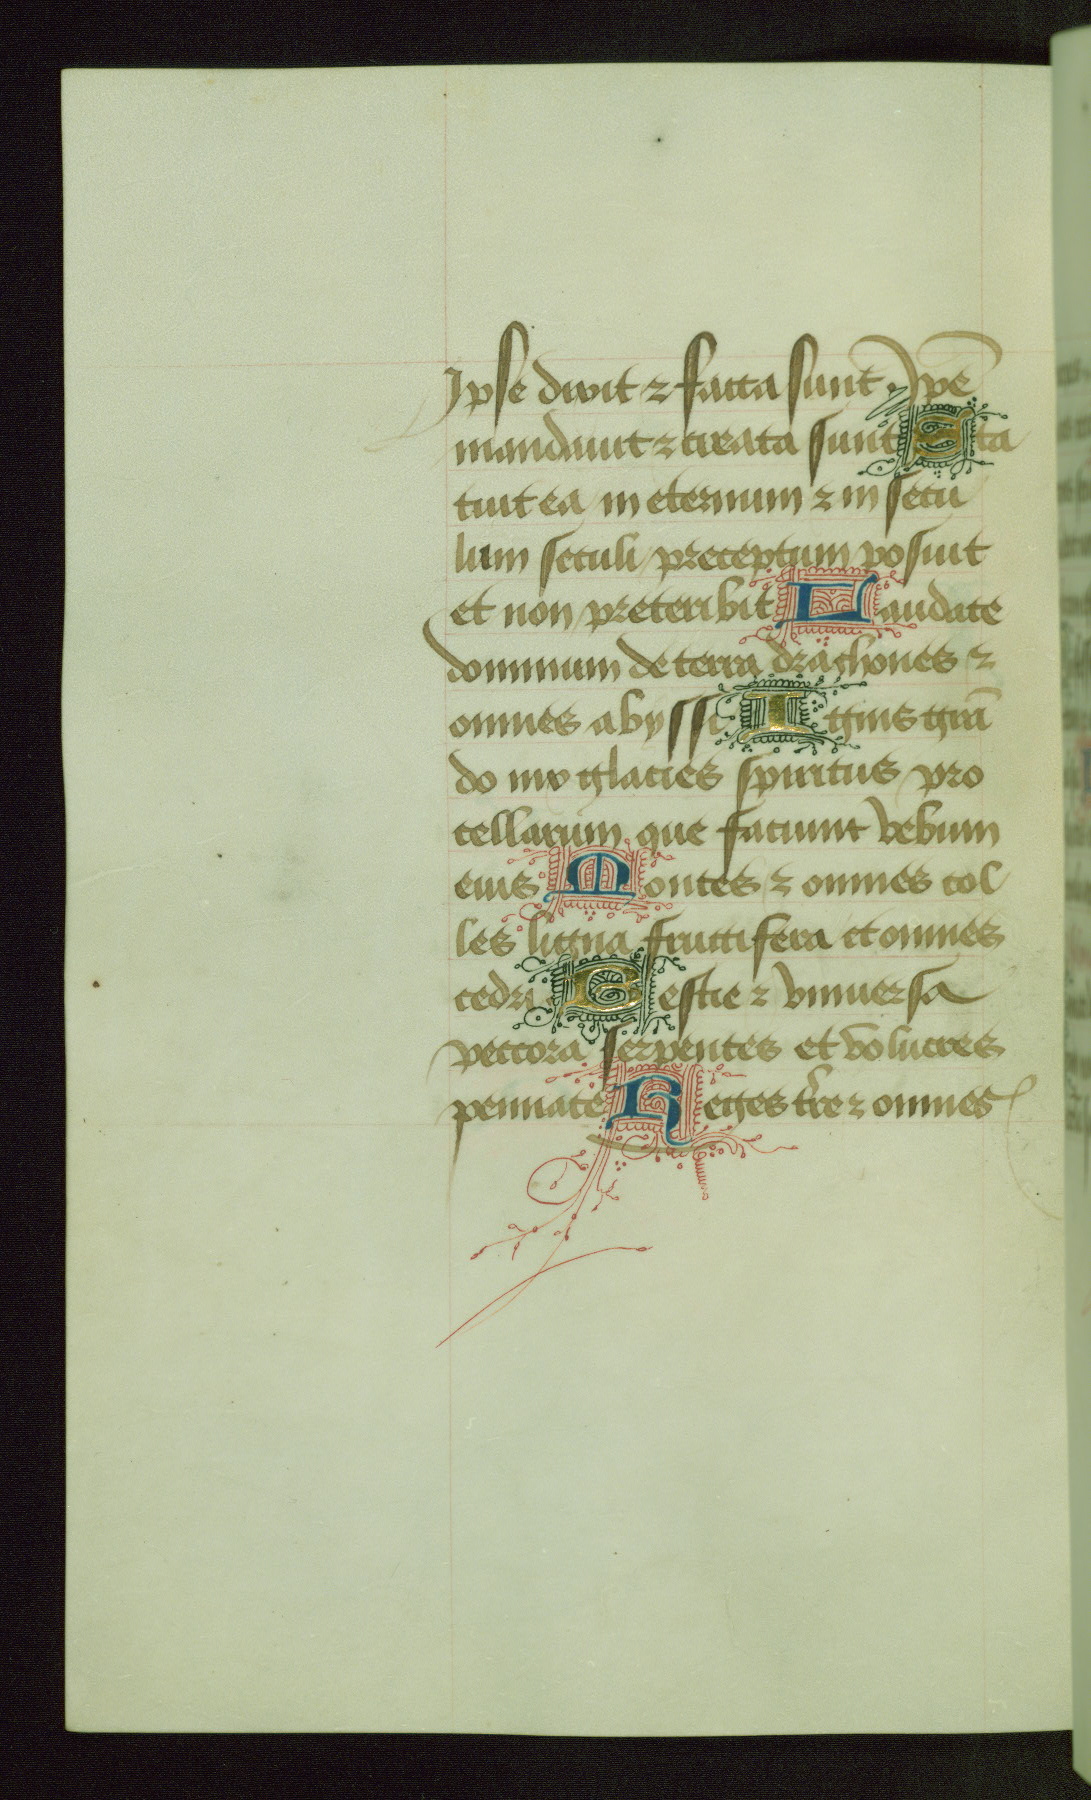 Ipse dixit ⁊ facta sunt. Ip̄e
mandauit ⁊ creata sunt Sta
tuit ea in eternum ⁊ in secu
lum seculi preceptum posuit
et non preteribit Laudate
dominum de terra drachones ⁊
omnes abyssi Ignis gra͞
do nix glacies spiritus pro
cellarum que faciunt verbum
eius Montes ⁊ omnes col
les ligna fructifera et omnes
cedri Bestie ⁊ vniuersa
peccora serpentes et volucres
pennate Reges tr̄e ⁊ omnes